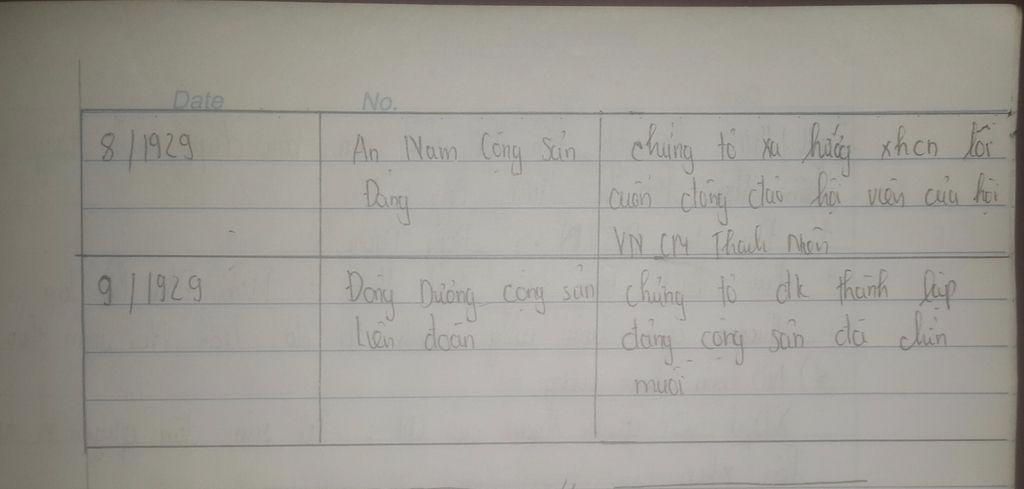 Date No.
8/1929 An Nam Cộng Sản chứng tỏ xu hướng xhcn lôi
Đảng cuốn đông đảo hội viên của hội
VN CM Thanh Niên
9/1929 Đông Dương cộng sản chứng tỏ đk thành lập
liên đoàn đảng cộng sản đã chín
muồi